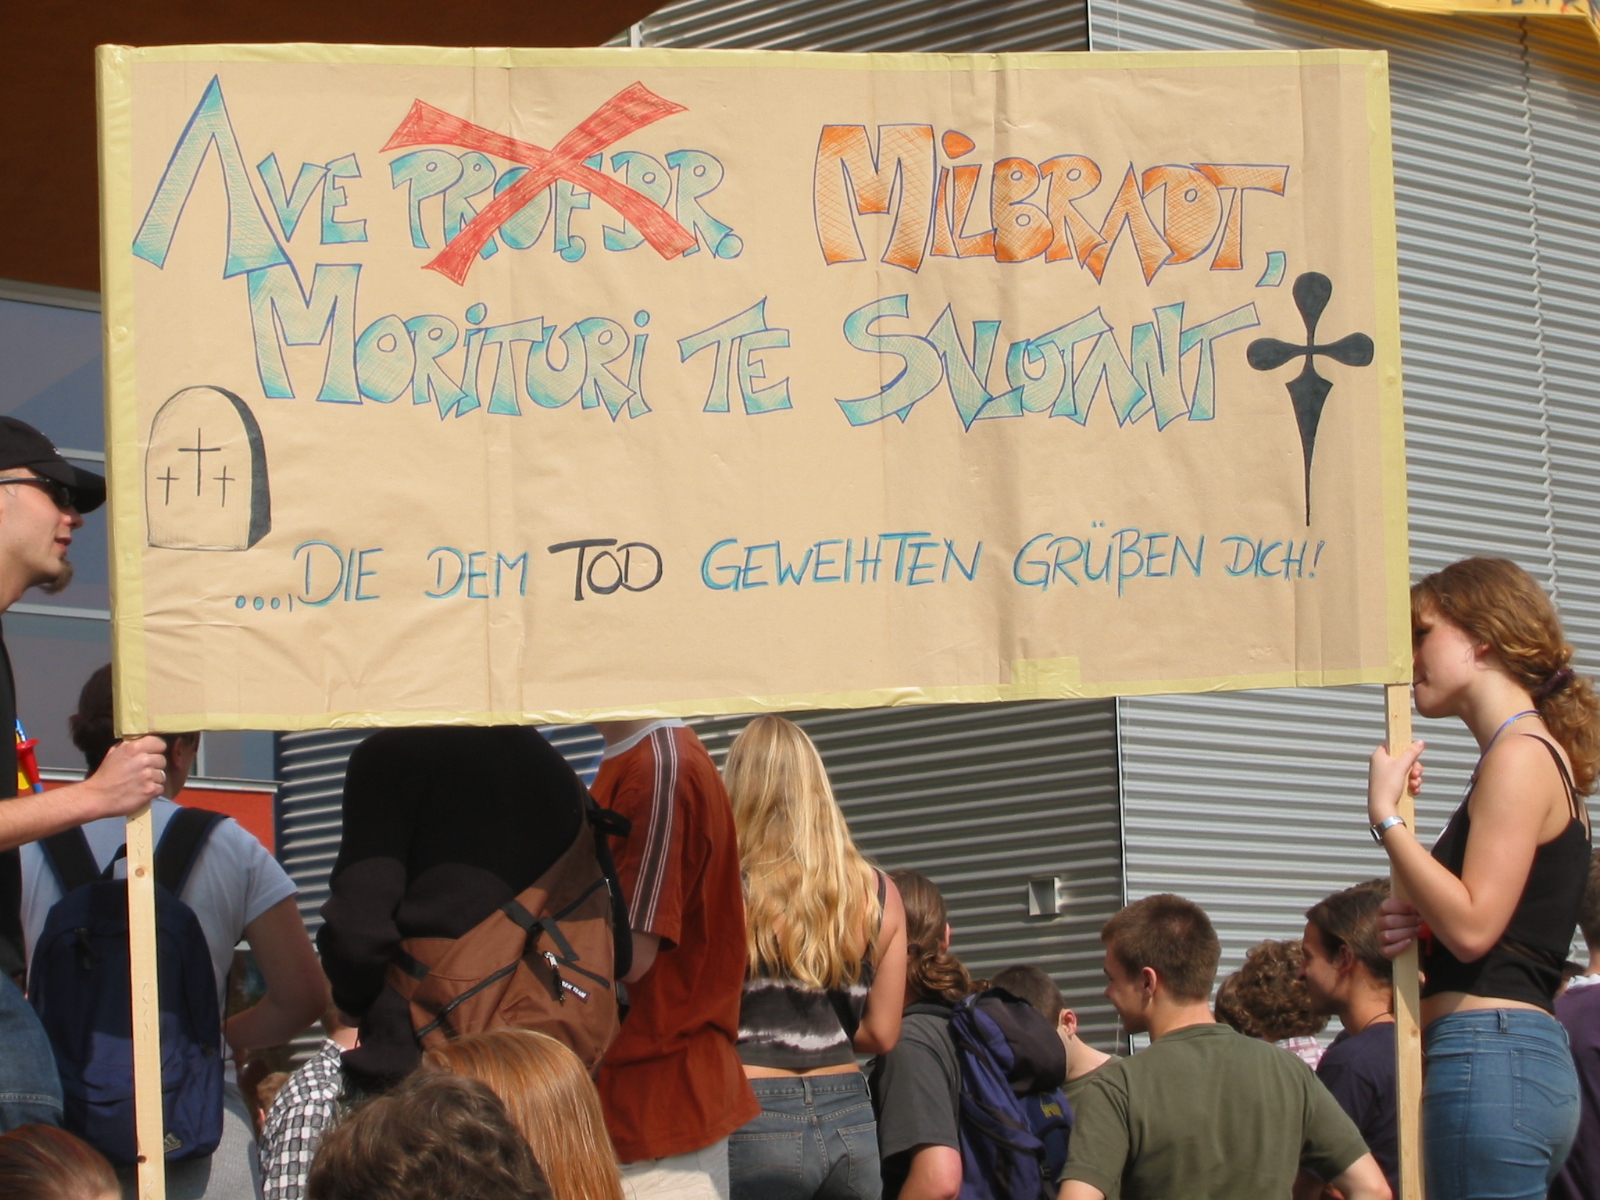 AVE PROF. DR. MILBRADT,
MORITURI TE SALUTANT
....,DIE DEM TOD GEWEIHTEN GRÜßEN DICH!